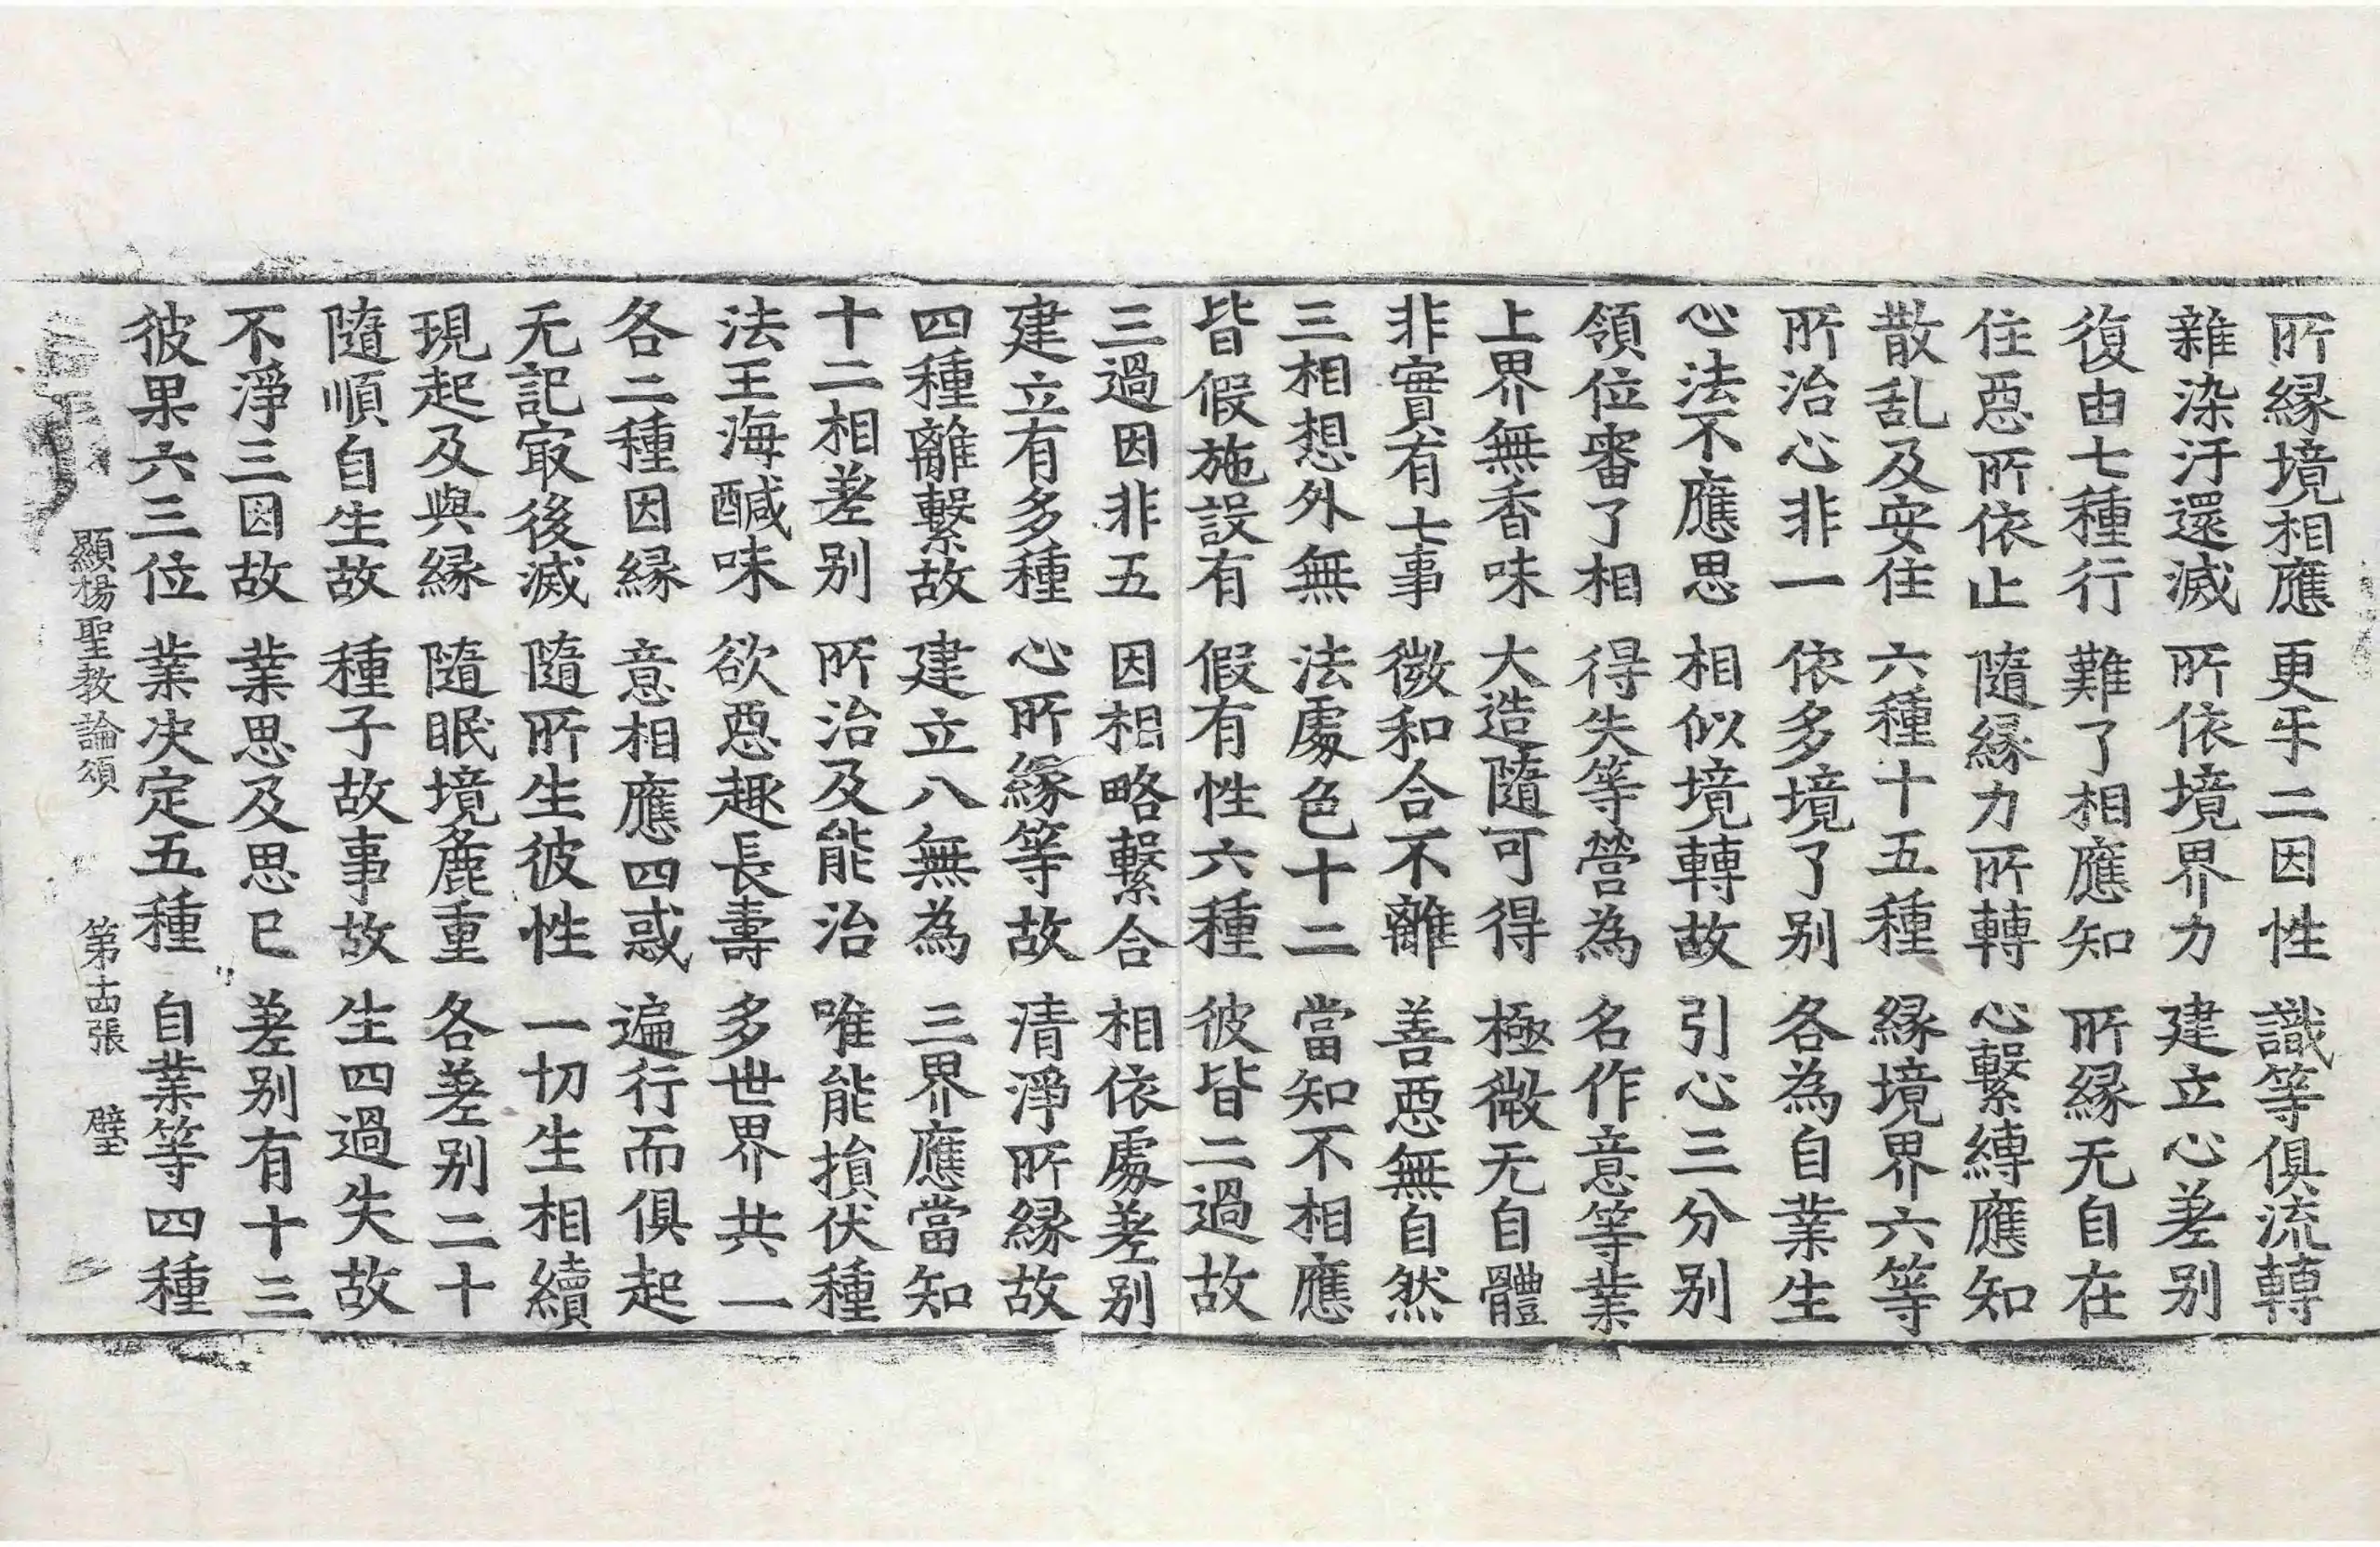 所縁境相應 更㸦二因性 識等俱流轉
雜染汙還滅 所依境界力 建立心差别
復由七種行 難了相應知 所縁无自在
住惡所依止 隨縁力所轉 心繫縛應知
散乱及安住 六種十五種 縁境界六等
所治心非一 依多境了别 各為自業生
心法不應思 相似境轉故 引心三分别
領位審了相 得失等營為 名作意等業
上界無香味 大造隨可得 極微无自體
非實有七事 微和合不離 善惡無自然
三相想外無 法處色十二 當知不相應
皆假施設有 假有性六種 彼皆二過故
三過因非五 因相略繫合 相依處差别
建立有多種 心所緣等故 清淨所縁故
四種離繫故 建立八無為 三界應當知
十二相差别 所治及能治 唯能損伏種
法王海醎味 欲惡趣長壽 多世界共一
各二種因縁 意相應四惑 遍行而俱起
无記㝡後滅 隨所生彼性 一切生相續
現起及與縁 隨眠境麁重 各差别二十
隨順自生故 種子故事故 生四過失故
不淨三因故 業思及思巳 差别有十三
彼果六三位 業决定五種 自業等四種
顯揚聖教論頌 第十四張 璧